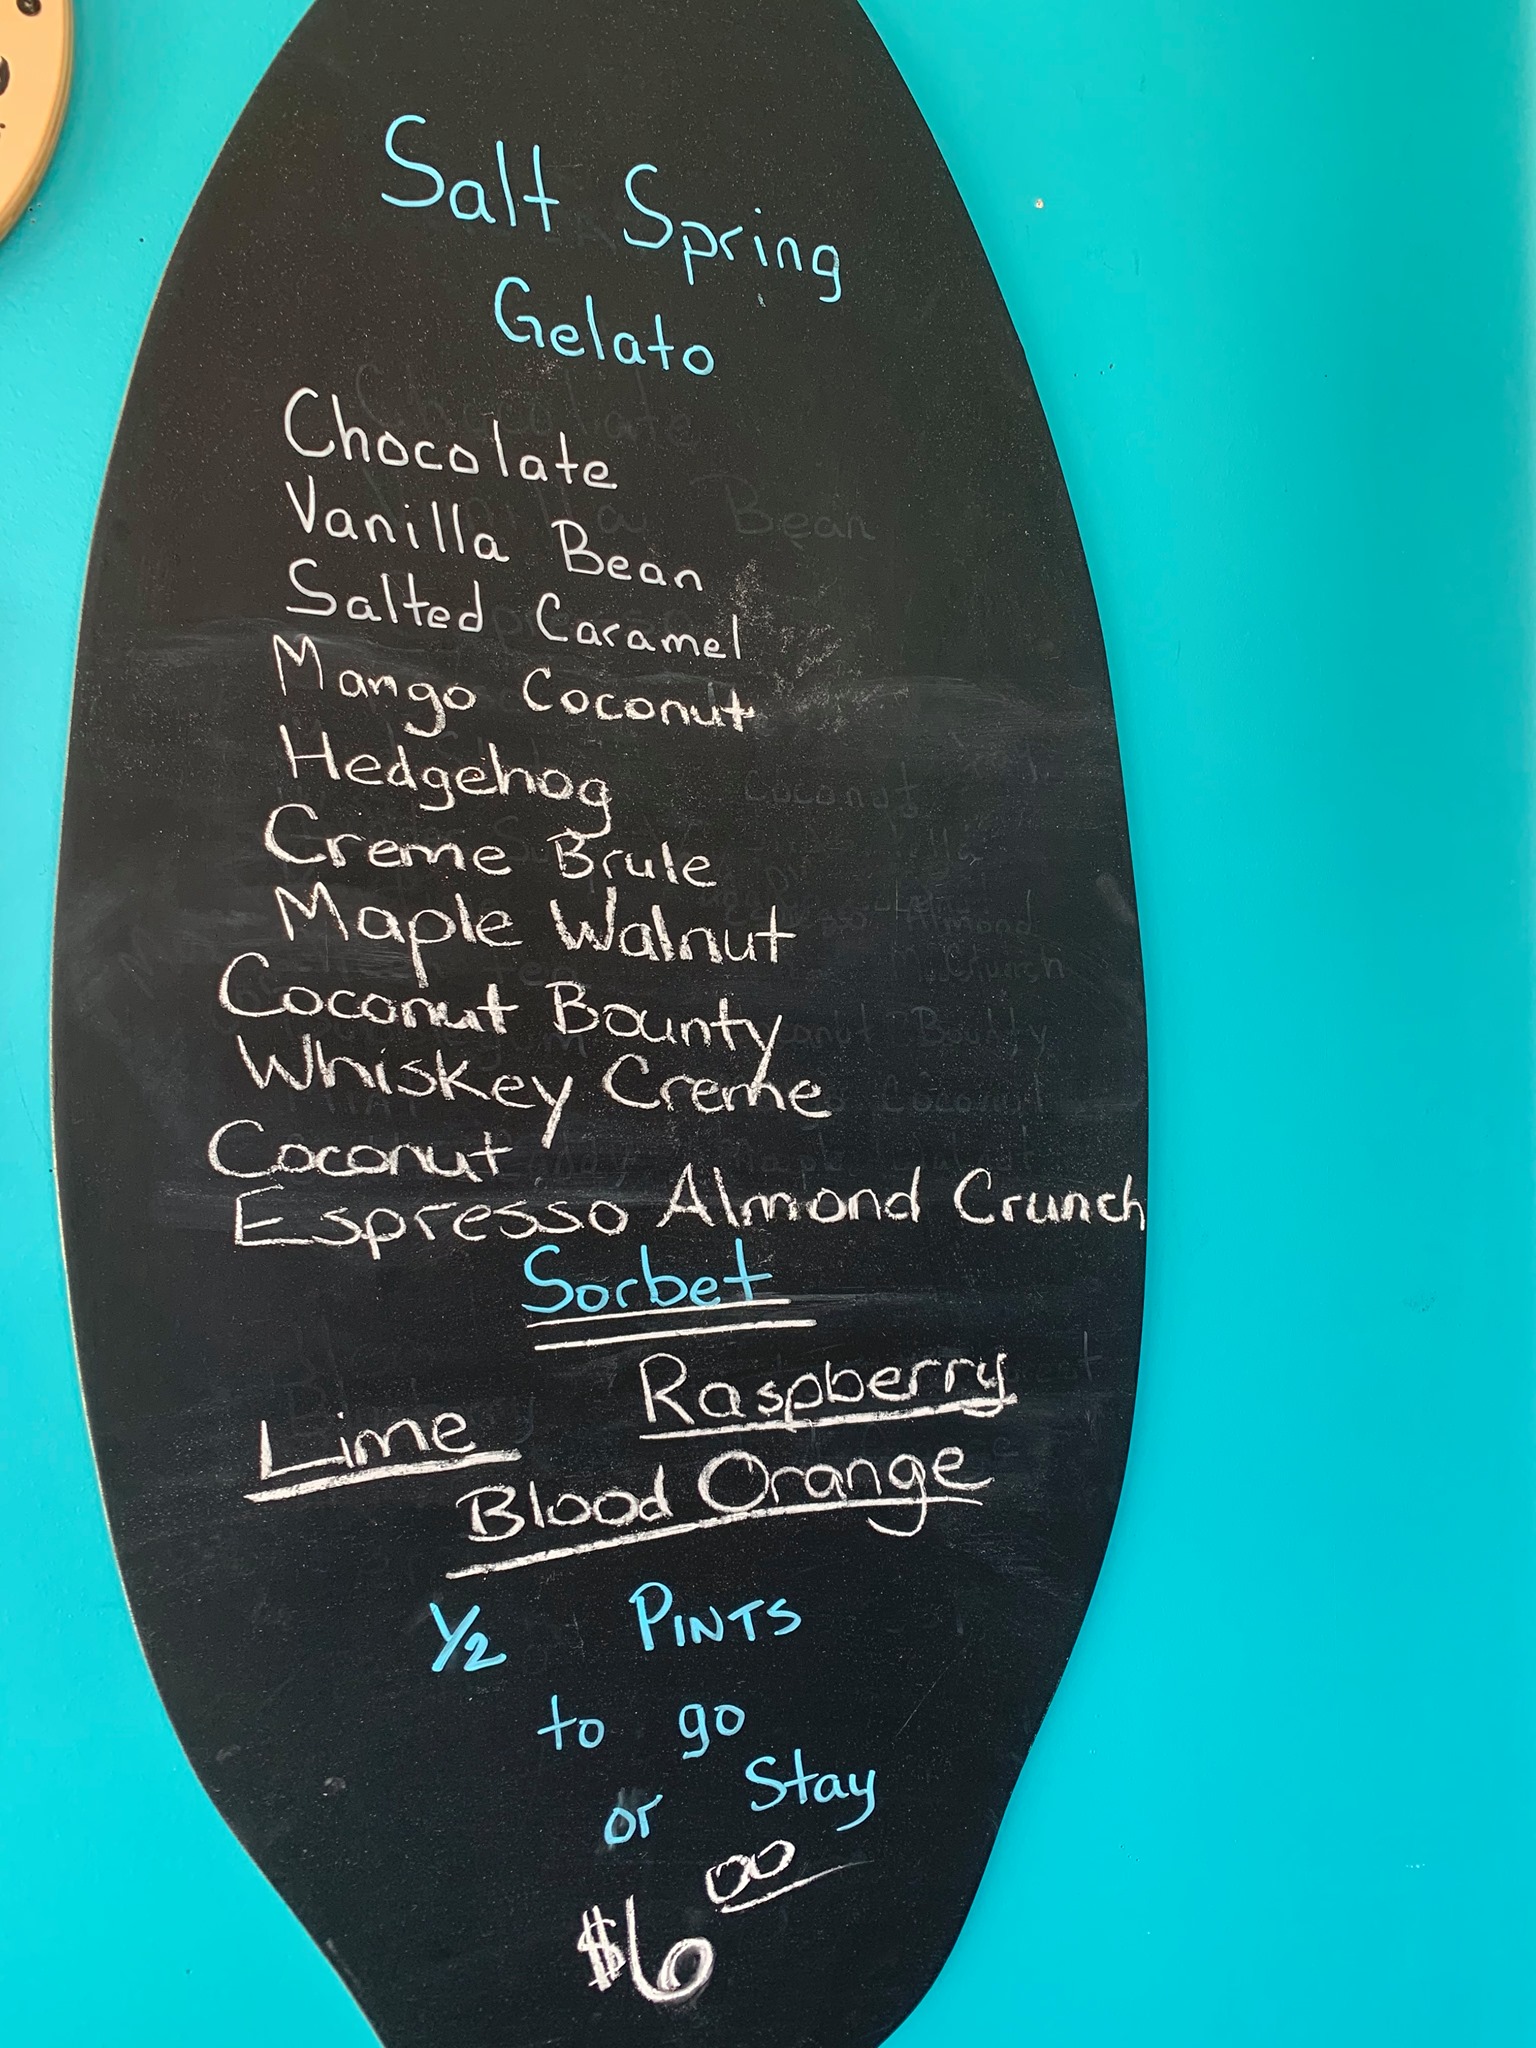 Salt Spring
Gelato
Chocolate
Vanilla Bean
Salted Caramel
Mango Coconut
Hedgehog
Creme Brule
Maple Walnut
Coconut Bounty
Whiskey Creme
Coconut
Espresso Almond Crunch
Sorbet
Raspberry
Lime
Blood Orange
1/2 PINTS
to go
or Stay
$6 00